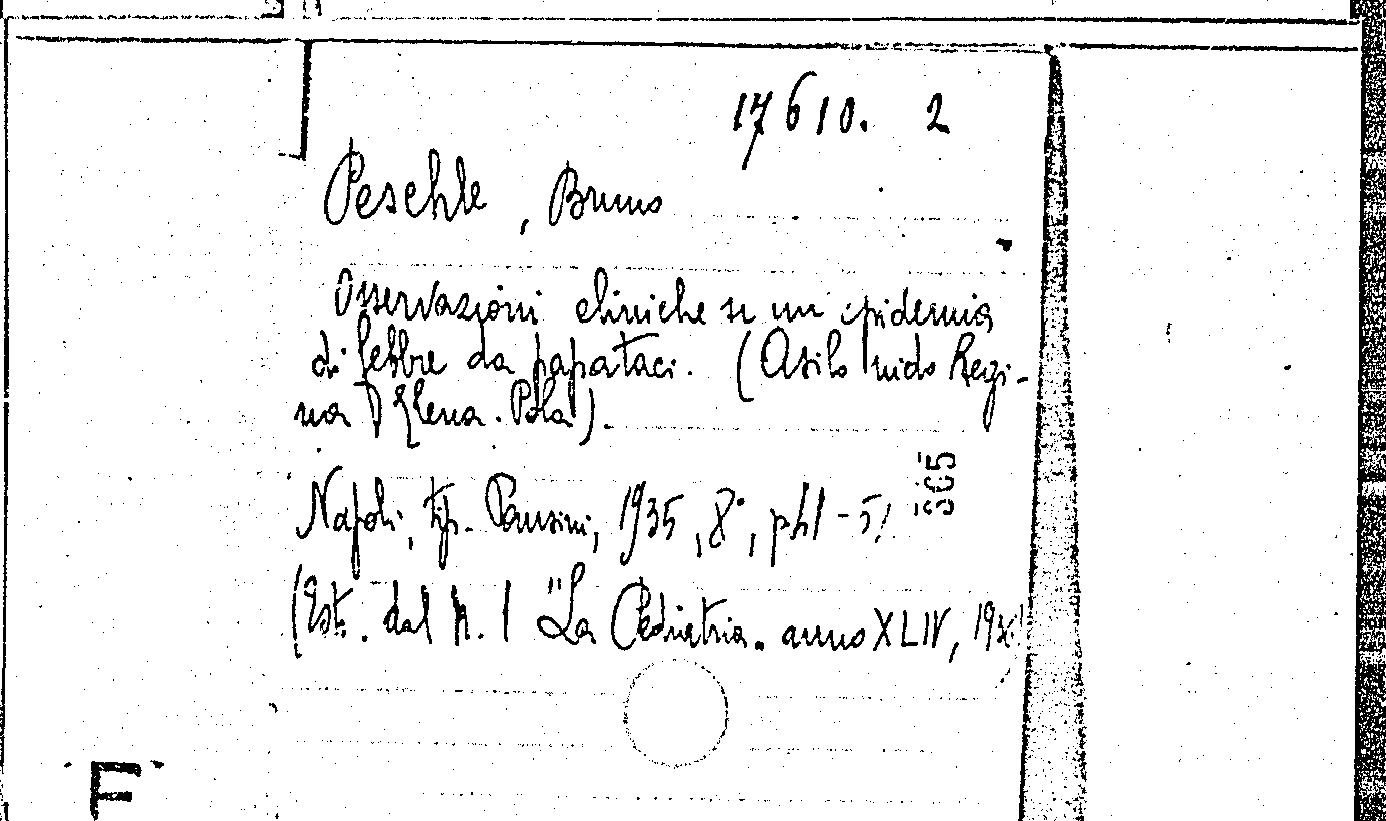 17610. 2
Peschle, Bruno
Osservazioni cliniche su un epidemia
di febbre da papataci. (Asilo nido Regi-
na Elena. Pola).
Napoli, tip. Pansini, 1935, 8°, 
305
(Estr. dal N. 1 "La Pediatria. anno XLIV,
F